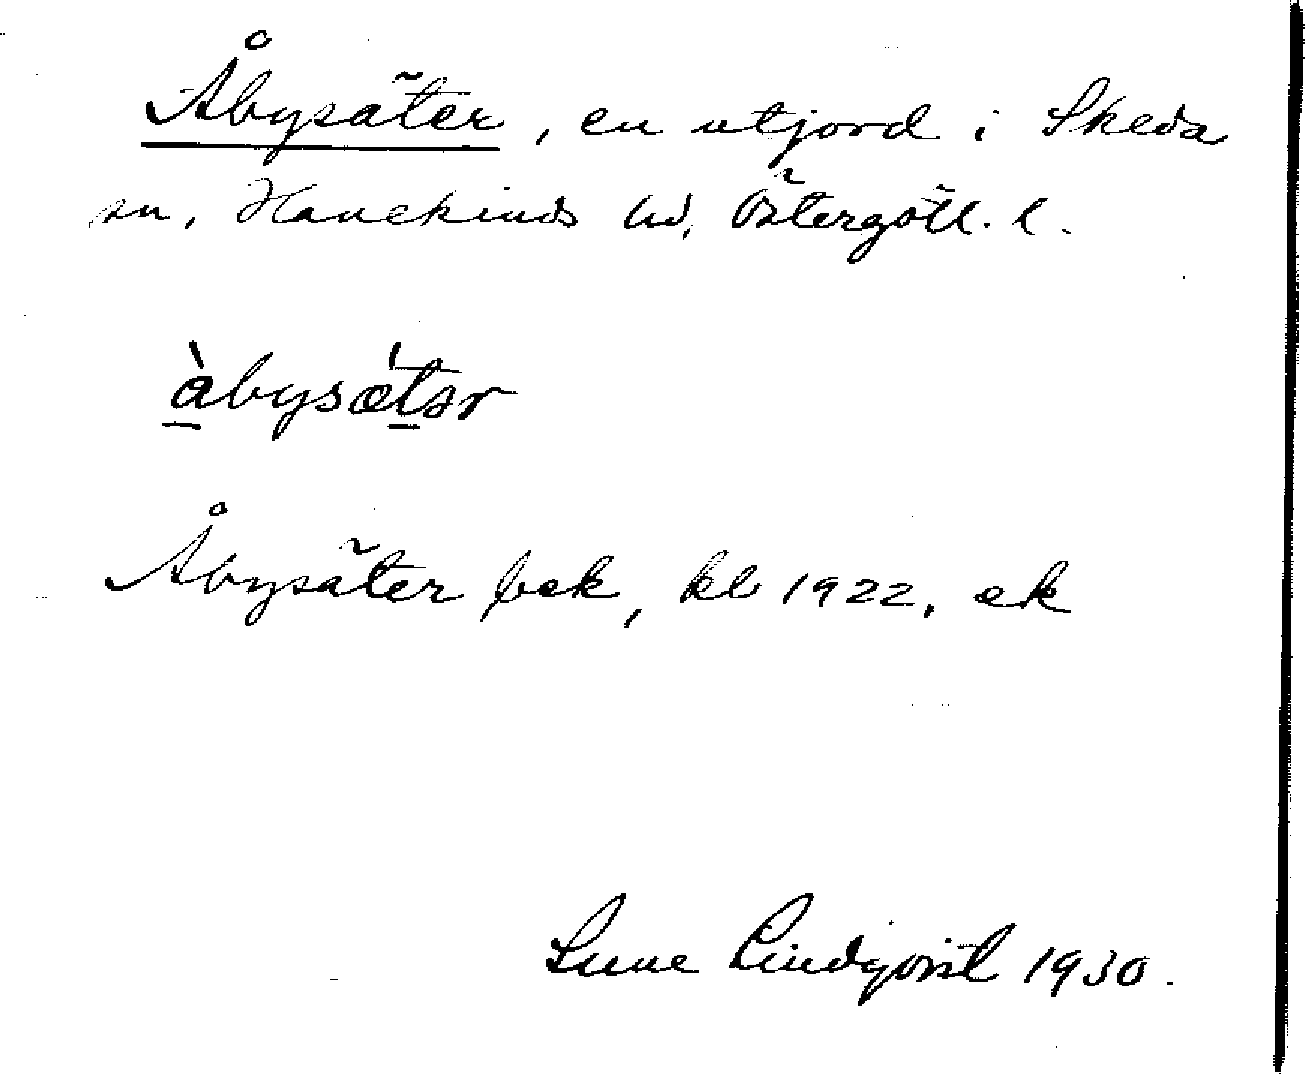 Åbysäter, en utjord i Skeda
sn, Hanekinds hd, Östergötl. l.
àbysætər
Åbysäter bek, kb 1922, ek
Sune Lindqvist 1930.